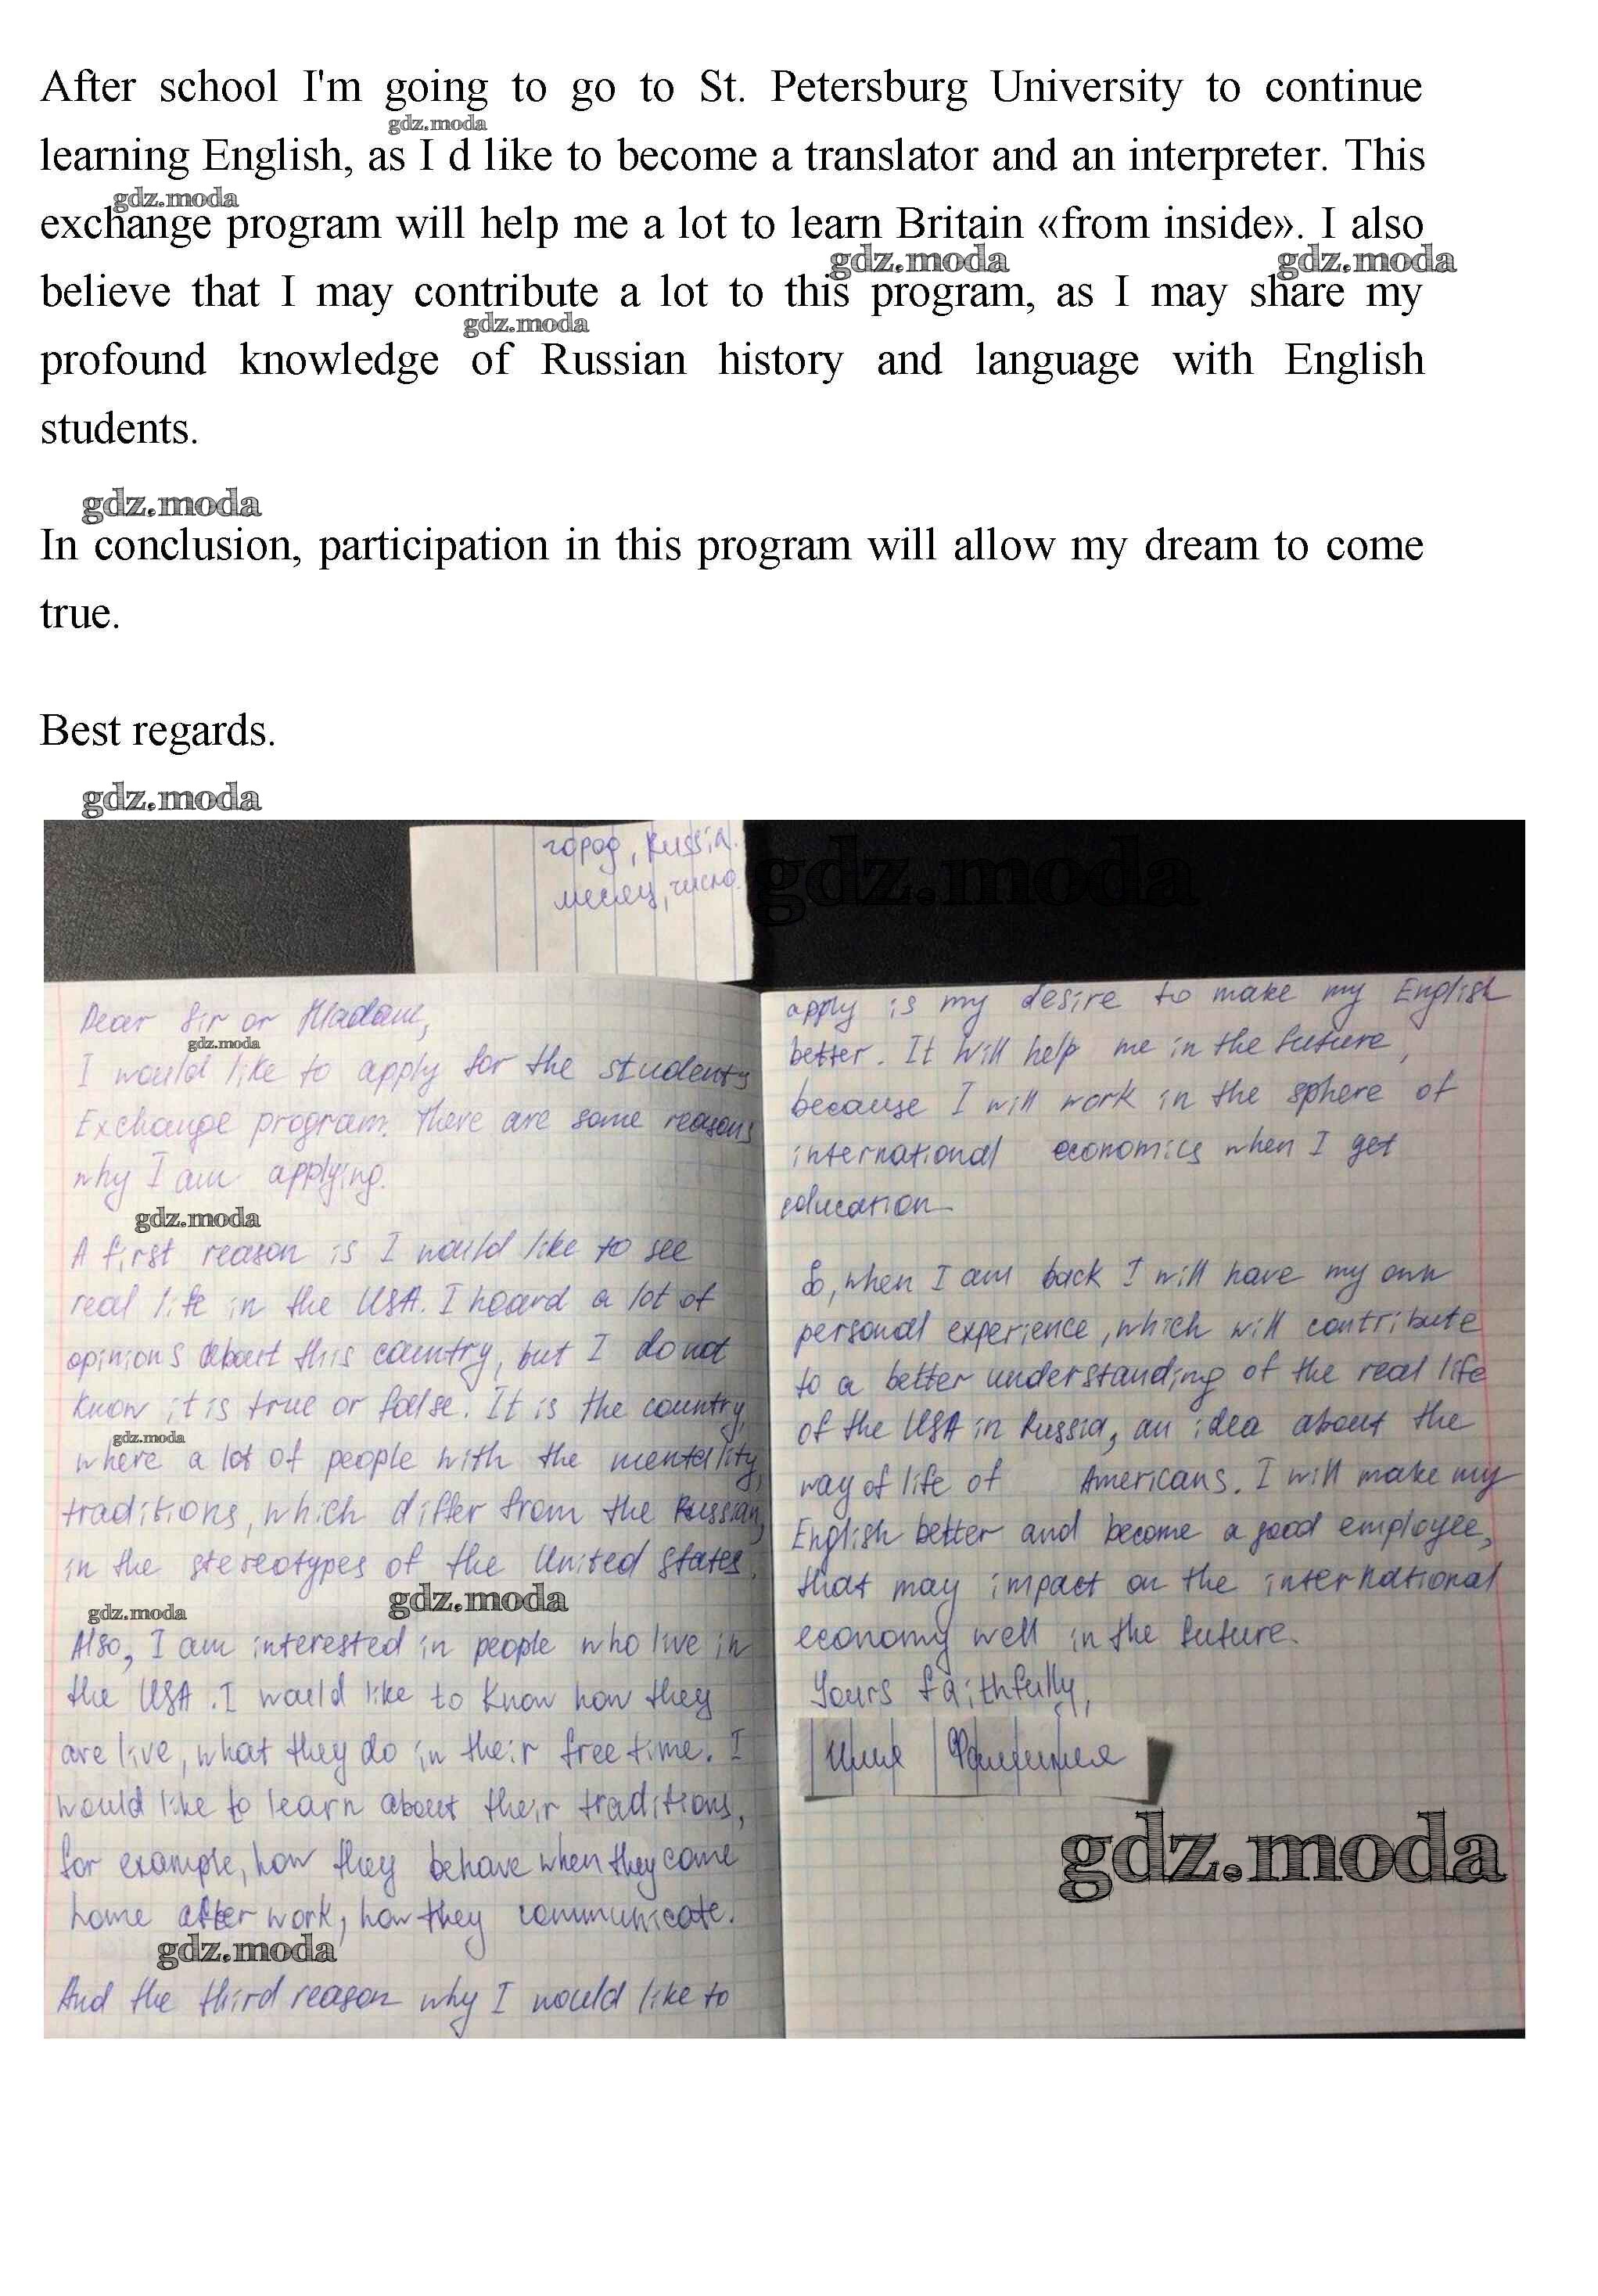 After school I'm going to go to St. Petersburg University to continue
gdz.moda
learning English, as I d like to become a translator and an interpreter. This
gdz.moda
exchange program will help me a lot to learn Britain «from inside». I also
gdz.moda gdz.moda
believe that I may contribute a lot to this program, as I may share my
gdz.moda
profound knowledge of Russian history and language with English
students.
gdz.moda
In conclusion, participation in this program will allow my dream to come
true.
Best regards.
gdz.moda
город, Russia.
месяц, число.
gdz.moda
Dear Sir or Madam,
gdz.moda
I would like to apply for the students
Exchange program. There are some reasons
why I am applying.
gdz.moda
A first reason is I would like to see
real life in the USA. I heard a lot of
opinions about this country, but I do not
know it is true or false. It is the country,
gdz.moda
where a lot of people with the mentality,
traditions, which differ from the Russian,
in the stereotypes of the United States.
gdz.moda
gdz.moda
Also, I am interested in people who live in
the USA. I would like to know how they
are live, what they do in their free time. I
would like to learn about their traditions,
for example, how they behave when they come
home after work, how they communicate.
gdz.moda
And the third reason why I would like to
apply is my desire to make my English
better. It will help me in the future,
because I will work in the sphere of
international economics when I get
education.
So, when I am back I will have my own
personal experience, which will contribute
to a better understanding of the real life
of the USA in Russia, an idea about the
way of life of Americans. I will make my
English better and become a good employee,
that may impact on the international
economy well in the future.
Yours faithfully,
Имя Фамилия
gdz.moda